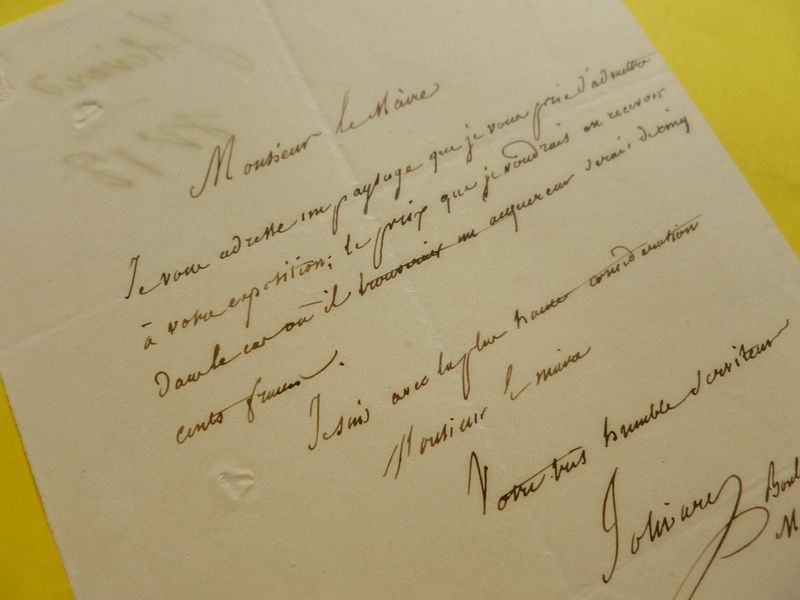 Monsieur le Maire
Je vous adresse un paysage que je vous prie d'admettre
à votre exposition; le prix que je voudrais en recevoir
dans le cas où il trouverait un acquereur serait de cinq
cents francs.
Je suis avec la plus haute considération
Monsieur le maire
Votre très humble serviteur
Jolivard
Boul
M